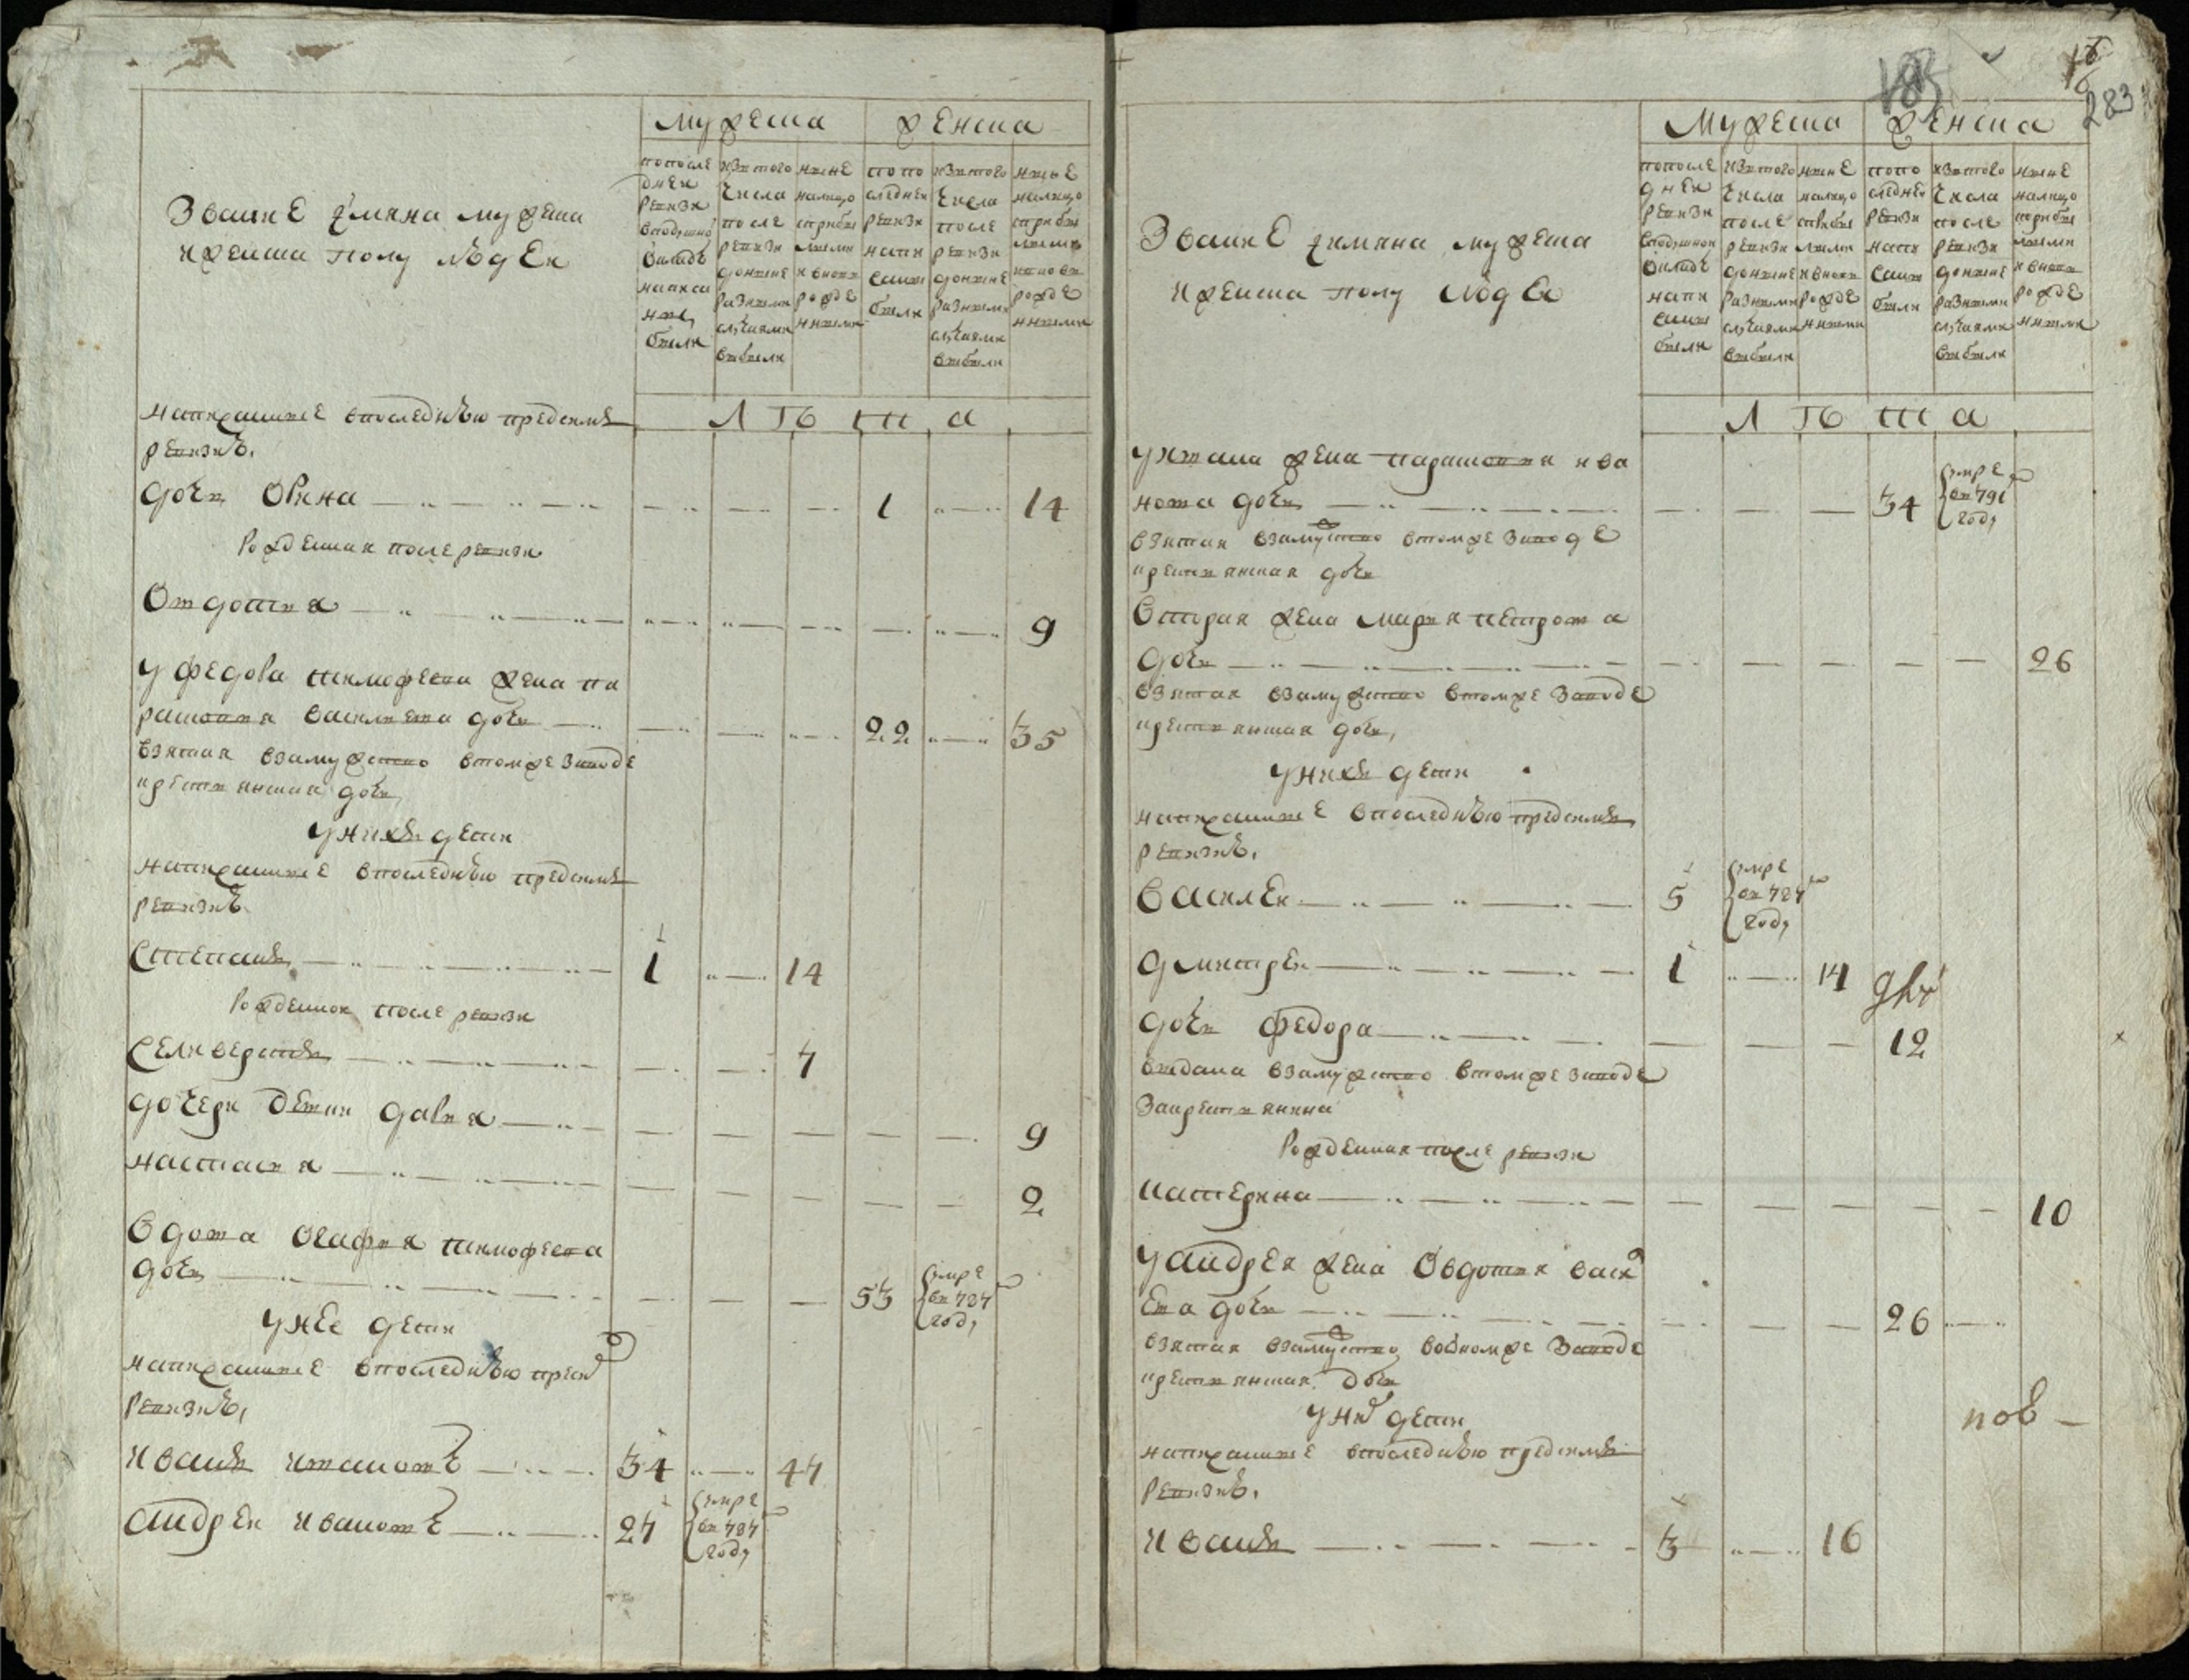 Звание и имяна мужеска
и женска полу людей
мужеска
женска
по после
дней
ревизи
в подушно
окладъ
написа
ны
были
изтого
числа
после
ревизи
до ныне
разными
случаями
выбыли
ныне
налицо
с прибы
лыми
и внови
рожде
нными
по по
следней
ревизи
напи
саны
были
изтого
числа
после
ревизи
до ныне
разными
случаями
выбыли
ныне
налицо
с прибы
лыми
и внови
рожде
нными
лѣта
написанные в последнюю пред симъ
ревизию.
дочь Орина 1 14
Рожденная после ревизи
Овдотия 9
у Федора Тимофеева жена Па
расковия Васильева дочь 22 35
взятая в замужство в том же заводе
крестиянская дочь
у них дети
написанные в последнюю пред симъ
ревизию
Степанъ 1 14
Рожденной после ревизи
Селиверстъ 7
дочери девки Дария 9
Настасия 2
вдова Огафия Тимофеева
дочь 53 умре въ 787 году
у нее дети
написанные в последнюю пред сим
ревизию,
Иванъ Ивановъ 34 47
Андрей Ивановъ 27 умре въ 787 году
283
Звание и имяна мужеска
и женска полу людей
мужеска
женска
по после
дней
ревизи
в подушной
окладъ
напи
саны
были
изтого
числа
после
ревизи
до ныне
разными
случаями
выбыли
ныне
налицо
с прибы
лыми
и внови
рожде
нными
по по
следней
ревизи
напи
саны
были
изтого
числа
после
ревизи
до ныне
разными
случаями
выбыли
ныне
налицо
с прибы
лыми
и внови
рожде
нными
лѣта
у Ивана жена Парасковия Ива
нова дочь 34 умре въ 791 году
взятая в замужство в том же заводе
крестиянская дочь
вторая жена Мария Петрова
дочь 26
взятая в замужство в том же заводе
крестиянская дочь,
у них дети
написанные в последнюю пред симъ
ревизию.
Василей 5 умре въ 787 году
Дмитрей 1 14
дочь Федора 12
выдана в замужство в том же заводе
за крестиянина
Рожденная после ревизи
Катерина 10
у Андрея жена Овдотия Васил
ева дочь 26
взятая в замужство во оном же заводе
крестиянская дочь
у них дети
пов
написанные в последнюю пред симъ
ревизию.
Иванъ 3 16